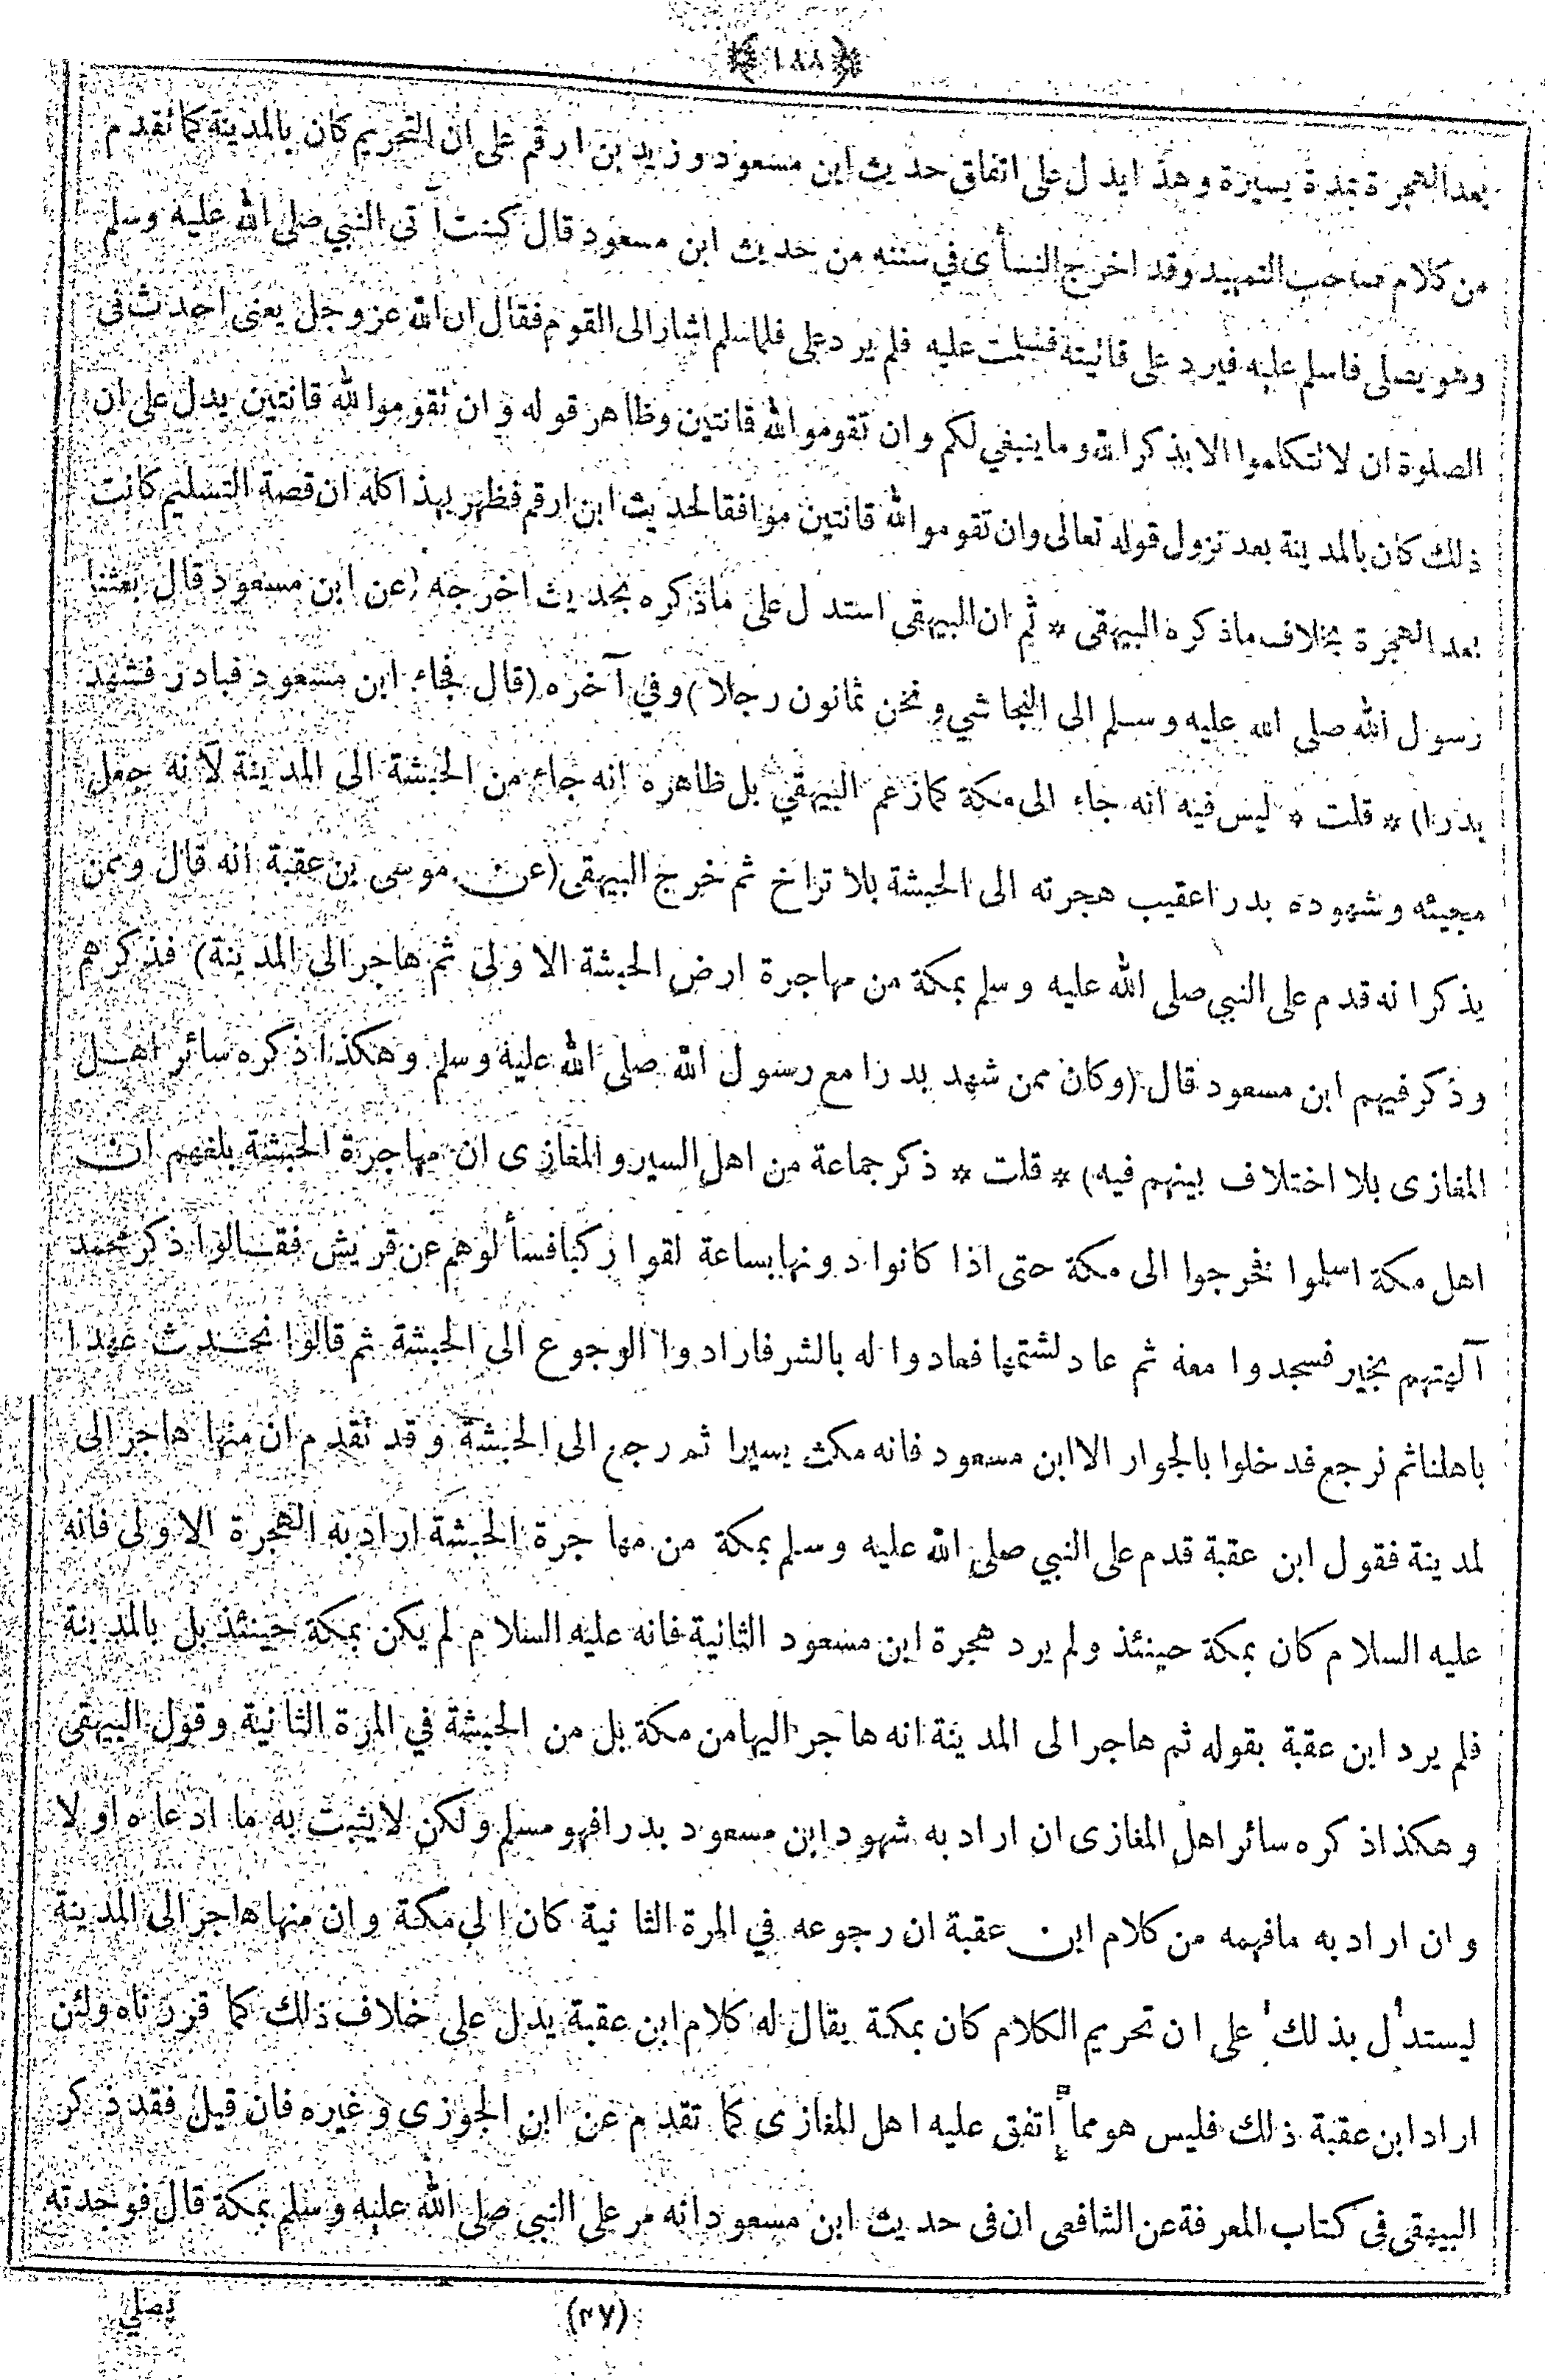 ﴿١٨٨﴾
بعد الهجرة بمدة يسيرة وهذا يدل على اتفاق حديث ابن مسعود وزيد بن ارقم على ان التحريم كان بالمدينة كما تقدم
من كلام صاحب التمهيد وقد اخرج النسأى في سننه من حديث ابن مسعود قال كنت آتى النبي صلى الله عليه وسلم
وهو يصلى فاسلم عليه فيرد على فاتيته فسلمت عليه فلم يرد على فلما سلم اشار الى القوم فقال ان الله عز وجل يعنى احدث فى
الصلوة ان لا تتكلموا الا بذكر الله وما ينبغي لكم وان تقوموا لله قانتين وظاهر قوله وان تقوموا لله قانتين يدل على ان
ذلك كان بالمدينة بعد نزول قوله تعالى وان تقوموا لله قانتين موافقا لحديث ابن ارقم فظهر بهذا كله ان قصة التسليم كانت
بعد الهجرة بخلاف ما ذكره البيهقى * ثم ان البيهقى استدل على ماذكره بحديث اخرجه (عن ابن مسعود قال بعثنا
رسول الله صلى الله عليه وسلم الى النجاشي ونحن ثمانون رجلا) وفي آخره (قال فجاء ابن مسعود فبادر فشهد
بدرا) * قلت * ليس فيه انه جاء الى مكة كما زعم البيهقي بل ظاهره انه جاء من الحبشة الى المدينة لأنه جعل
مجيئه وشهوده بدرا عقيب هجرته الى الحبشة بلا تراخ ثم خرج البيهقى (عن موسى بن عقبة انه قال وممن
يذكر انه قدم على النبي صلى الله عليه وسلم بمكة من مهاجرة ارض الحبشة الاولى ثم هاجر الى المدينة) فذكرهم
وذكر فيهم ابن مسعود قال (وكان ممن شهد بدرا مع رسول الله صلى الله عليه وسلم وهكذا ذكره سائر اهل
المغازى بلا اختلاف بينهم فيه) * قلت * ذكر جماعة من اهل السير والمغازى ان مهاجرة الحبشة بلغهم ان
اهل مكة اسلموا فخرجوا الى مكة حتى اذا كانوا دونها بساعة لقوا ركبا فسألوهم عن قريش فقالوا ذكر محمد
آلهتهم بخير فسجدوا معه ثم عاد لشتمها فعادوا له بالشر فارادوا الرجوع الى الحبشة ثم قالوا نحدث عهدا
باهلنا ثم نرجع فدخلوا بالجوار الا ابن مسعود فانه مكث يسيرا ثم رجع الى الحبشة وقد تقدم ان منها هاجر الى
لمدينة فقول ابن عقبة قدم على النبي صلى الله عليه وسلم بمكة من مهاجرة الحبشة اراد به الهجرة الاولى فانه
عليه السلام كان بمكة حينئذ ولم يرد هجرة ابن مسعود الثانية فانه عليه السلام لم يكن بمكة حينئذ بل بالمدينة
فلم يرد ابن عقبة بقوله ثم هاجر الى المدينة انه هاجر اليها من مكة بل من الحبشة في المرة الثانية وقول البيهقى
وهكذا ذكره سائر اهل المغازى ان اراد به شهود ابن مسعود بدرا فهو مسلم ولكن لا يثبت به ما ادعاه اولا
وان اراد به مافهمه من كلام ابن عقبة ان رجوعه في المرة الثانية كان الى مكة وان منها هاجر الى المدينة
ليستدل بذلك على ان تحريم الكلام كان بمكة يقال له كلام ابن عقبة يدل على خلاف ذلك كما قررناه ولئن
اراد ابن عقبة ذلك فليس هو مما اتفق عليه اهل المغازى كما تقدم عن ابن الجوزى وغيره فان قيل فقد ذكر
البيهقى فى كتاب المعرفة عن الشافعى ان فى حديث ابن مسعود انه مر على النبي صلى الله عليه وسلم بمكة قال فوجدته
(٤٧) يصلي